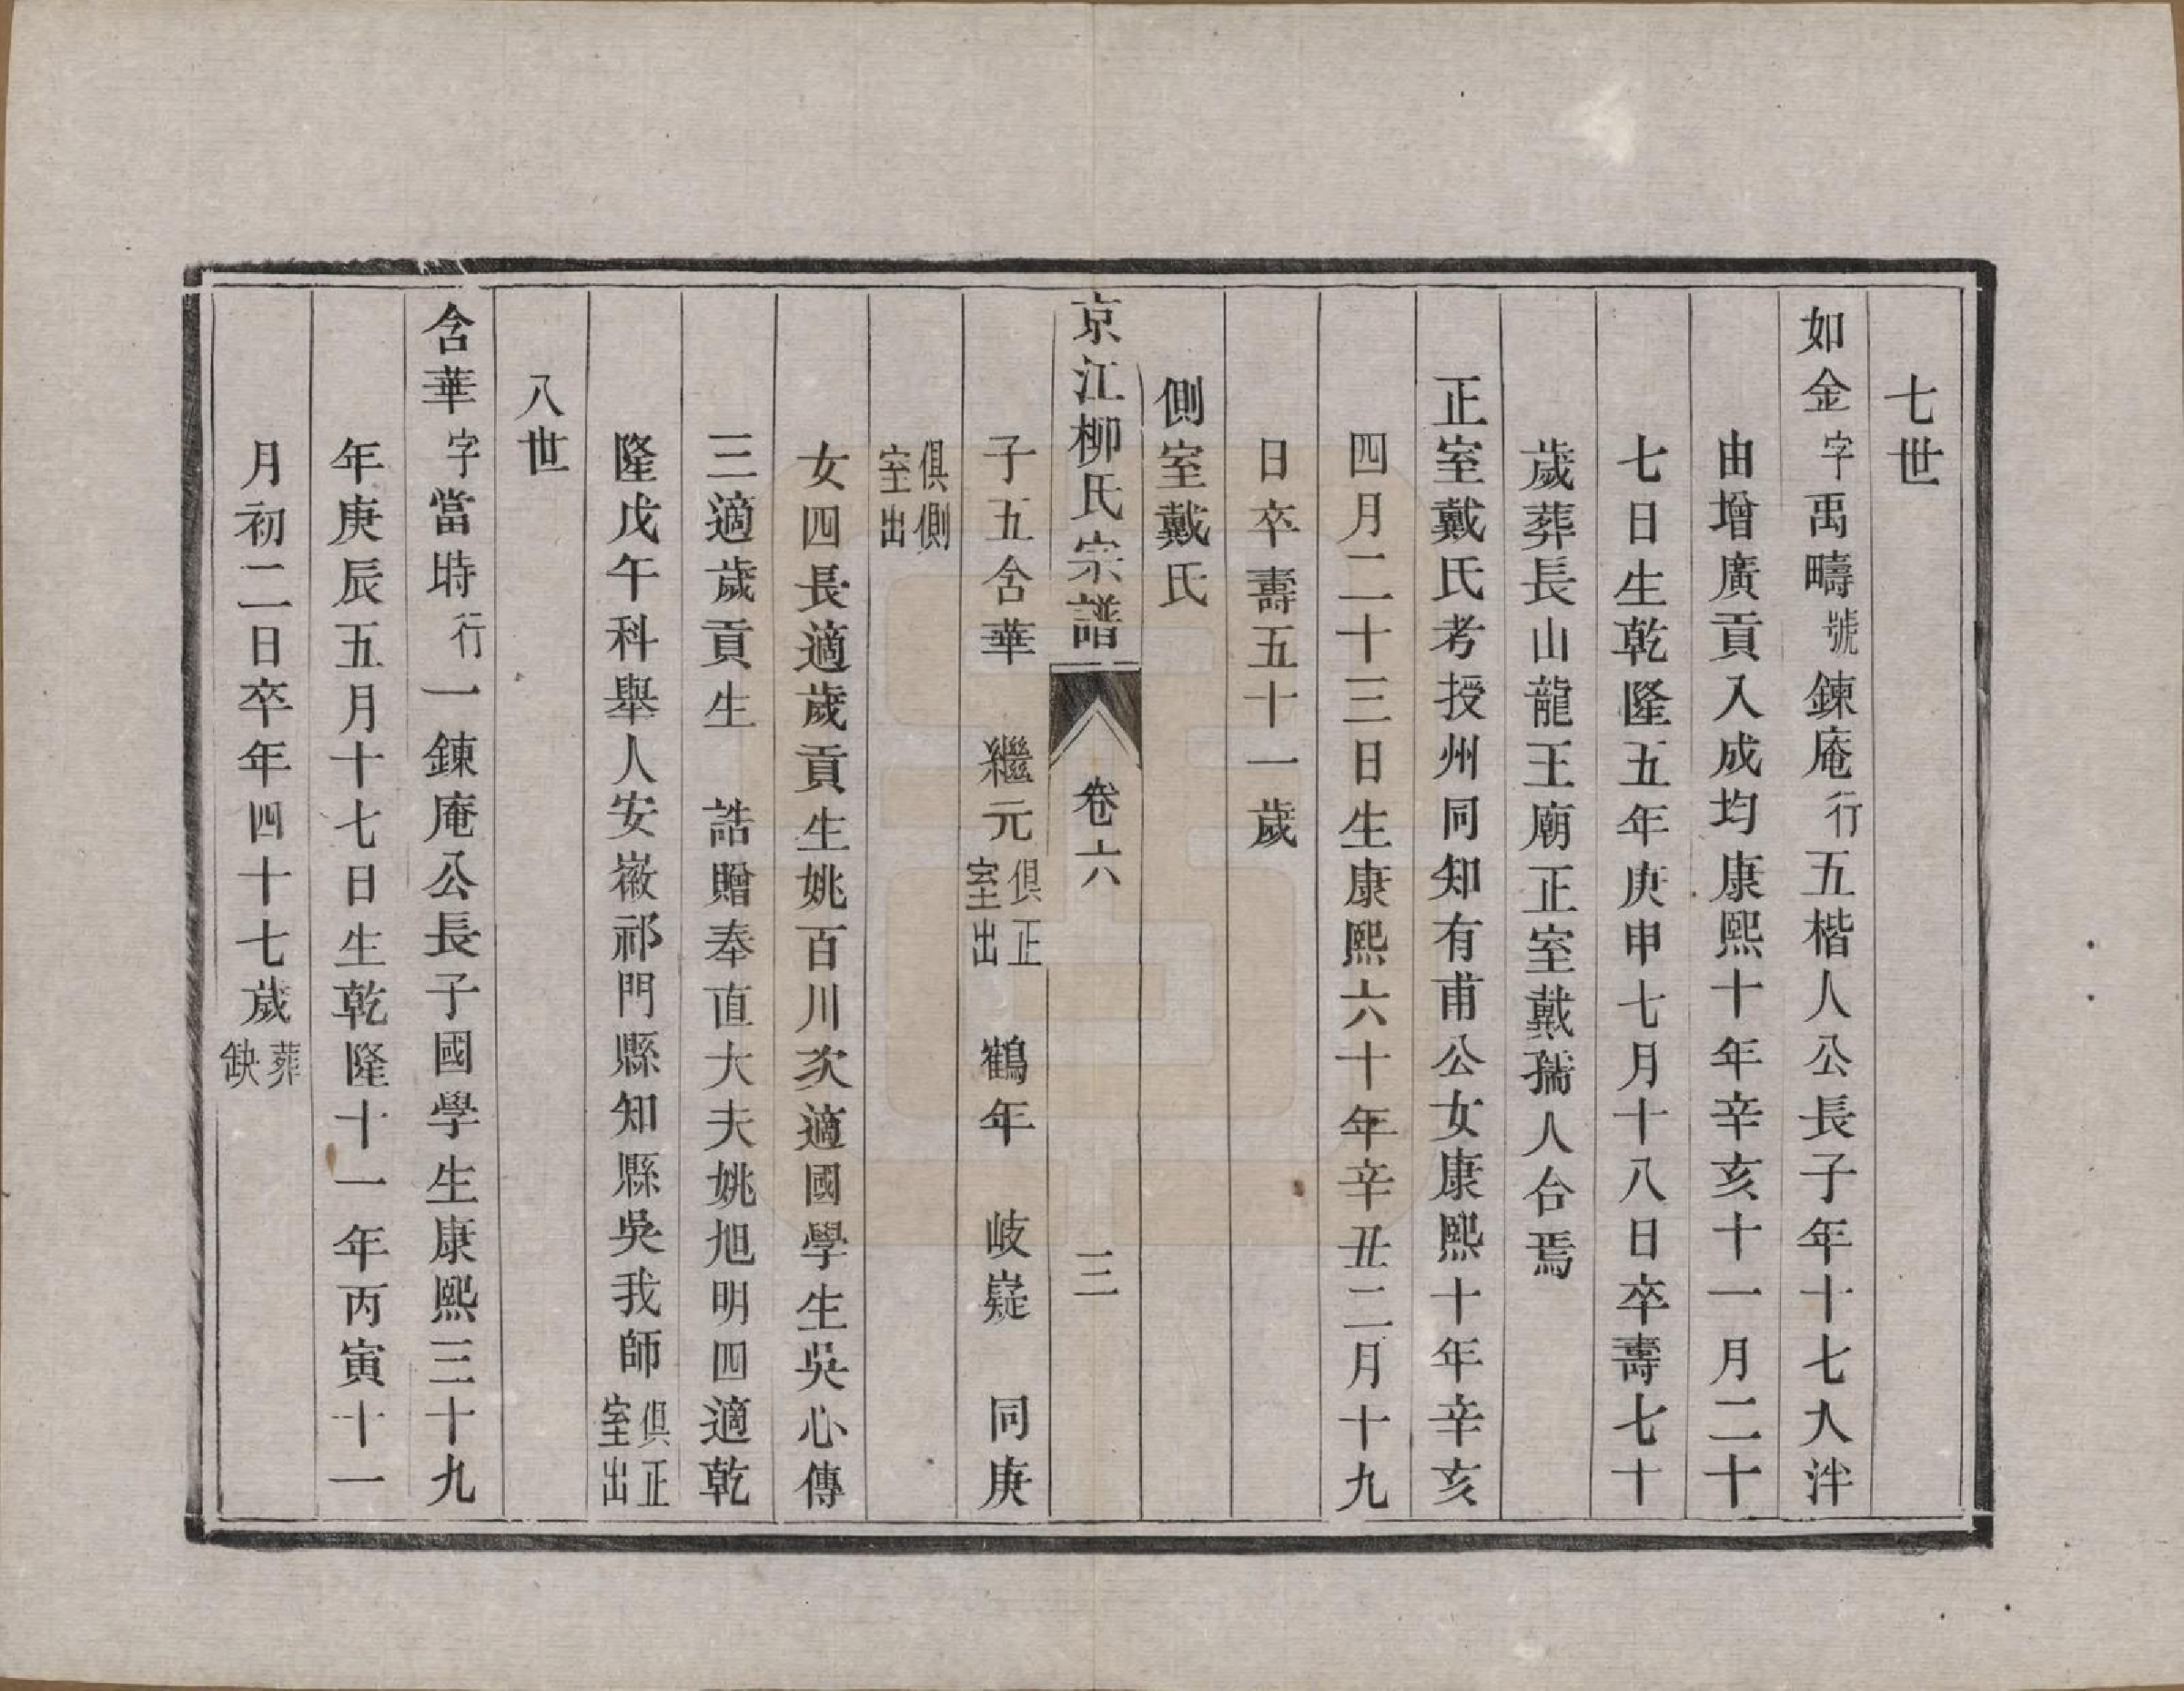 七世
如金字禹疇號鍊庵行五楷人公長子年十七入泮
由增廣貢入成均康熙十年辛亥十一月二十
七日生乾隆五年庚申七月十八日卒壽七十
歲葬長山龍王廟正室戴孺人合焉
正室戴氏考授州同知有甫公女康熙十年辛亥
四月二十三日生康熙六十年辛丑二月十九
日卒壽五十一歲
側室戴氏
京江柳氏宗譜 卷六 三
子五含華 繼元俱正室出 鶴年 岐嶷 同庚
俱側室出
女四長適歲貢生姚百川次適國學生吳心傳
三適歲貢生 誥贈奉直大夫姚旭明四適乾
隆戊午科舉人安徽祁門縣知縣吳我師俱正室出
八世
含華字當時行一鍊庵公長子國學生康熙三十九
年庚辰五月十七日生乾隆十一年丙寅十一
月初二日卒年四十七歲葬缺